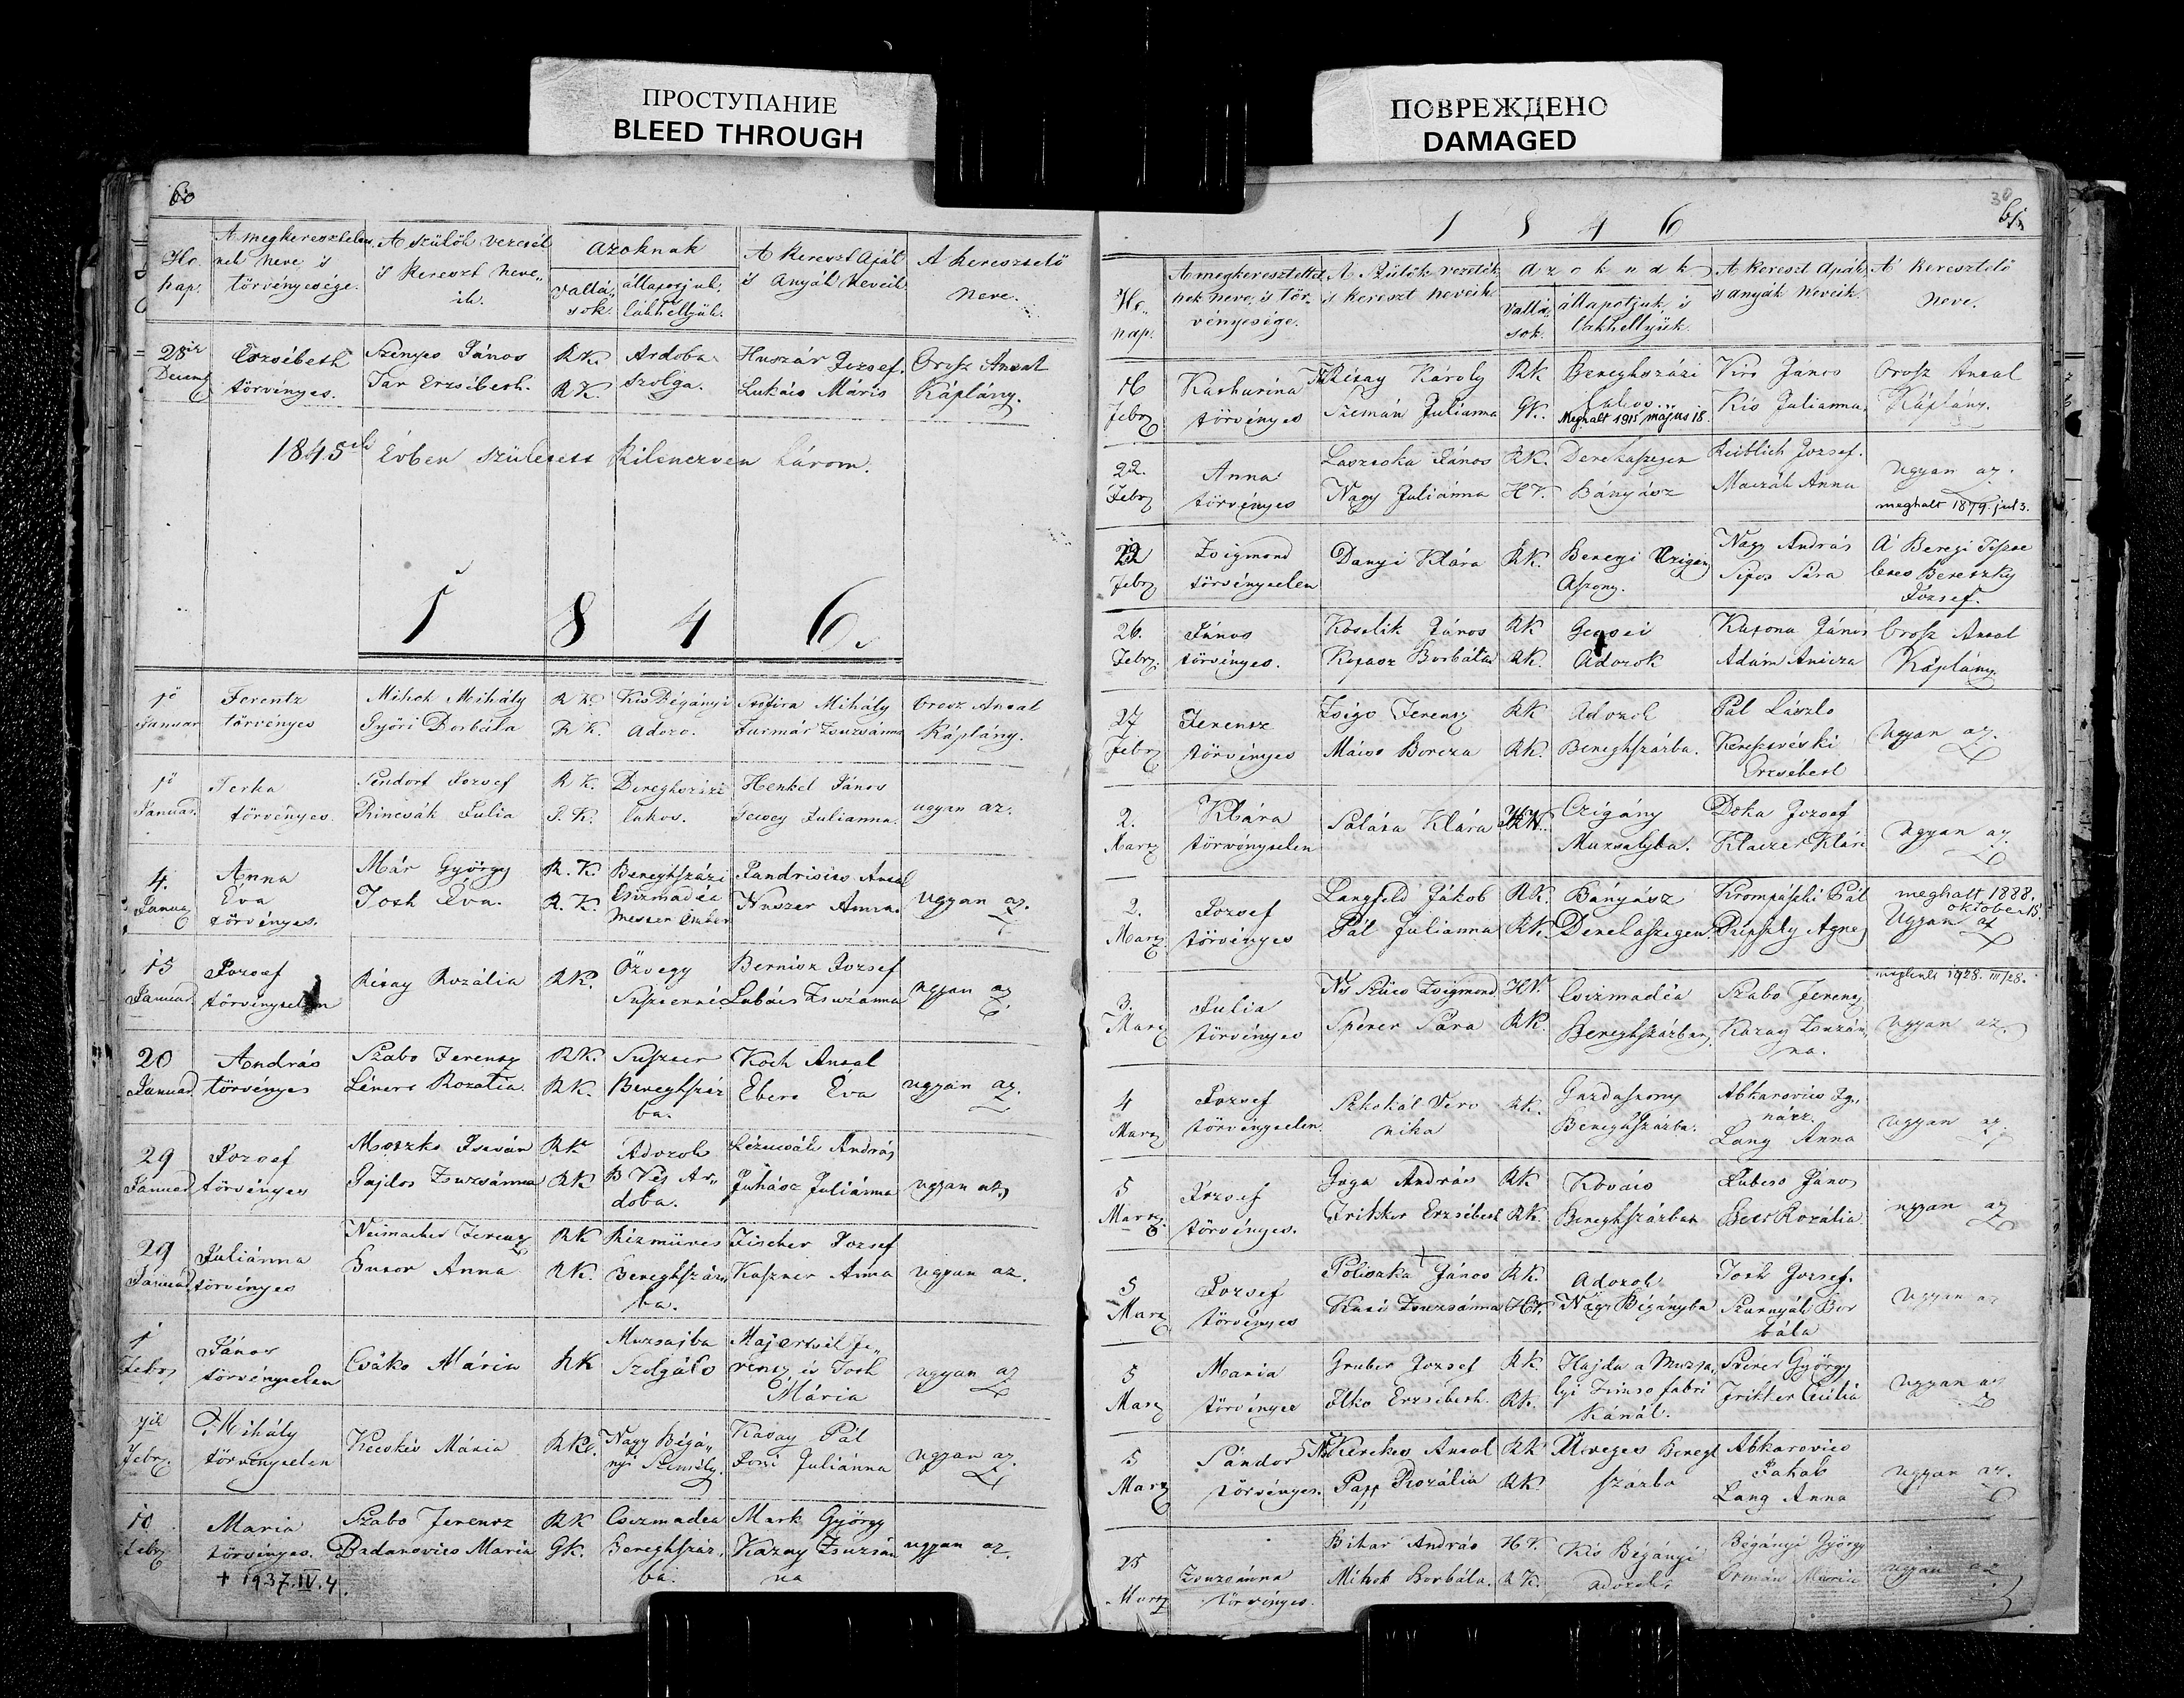 ПРОСТУПАНИЕ
BLEED THROUGH
ПОВРЕЖДЕНО
DAMAGED
60
Ho
nap.
A megkeresztelen
nek neve is
törvényesége.
A szülök vezeték
is kereszt neve,,
ik.
azoknak
Vallá,,
sok.
állapotjuk
lakhellyük.
A kereszt Aják
is Anyák Neveik
A keresztelö
Neve.
28ik
Decemb
Erzsébeth
törvényes.
Szényes János
Tar Erzsébeth.
RK.
RK.
Ardoba
szolga.
Huszár Jozsef.
Lukács Máris
Orosz Antal
Káplány.
1845ik Évben született kilenczven három.
1846.
1ő
Januar
Ferentz
törvényes
Mihok Mihály
Györi Borbála
R K.
R K.
Kis Bégányi
Adozo.
Mihály
Furmár Zsuzsánna
Orosz Antal
Káplány.
1ő
Januar.
Terka
törvényes
Jozsef
Princsák Julia
R K.
Bereghszászi
lakos.
Henkel János
Julianna
ugyan az.
4.
Janua
Anna
Éva
törvényes.
Már György
Toth Éva.
R. K.
R. K.
Bereghszászi
Csizmadia
Mester Ember
Antal
Anna.
Ugyan az.
15
Januar
Jozsef
törvénytelen
Résay Rozália
RK.
Özvegy
Bernisz Jozsef
Lukács Zsuzánna
Ugyan az
20
Januar
András
törvényes
Szabo Ferentz
Rozália
RK.
RK.
Bereghszász
ba.
Koch Antal
Ebers Éva
ugyan az.
29
Januar
Jozsef
törvényes
Moszko István
Gajdos Zsuzsánna
RK
RK
Adozok
B Vég Ar,,
doba.
András
Juhász Juliánna
ugyan az.
29
Januar
Juliánna
törvényes
Neimacher Ferencz
Bunor Anna
RK
RK.
Rézmüves
Bereghszász,,
ba.
Fischer Jozsef
Kaszner Anna
Ugyan az.
1
Febr
János
törvénytelen
Csáko Mária
RK
Muzsajba
Szolgálo
Fe,,
rencz és Toth
Mária
ugyan az
7ik
Febr.
Mihály
törvénytelen
Kecskés Mária
RK.
Nagy Bégá,,
nyi Személy.
Kasay Pál
Joni Juliánna
ugyan az.
10
Febr
Maria
törvényes.
+ 1937.IV.4.
Szabo Ferentz
Badanovics Maria
RK
GK.
Csizmadea
Bereghszász,
ba
Mark György
Kazay Zsuzsán
na
ugyan az.
30
61
1846
Ho,,
nap.
A megkereszteltet
nek neve, is tör,,
vényesége.
A Szülök vezeték
is kereszt neveik
azoknak
Vallá
sok.
állapotjuk, is
lakhellyük.
A kereszt Apák
is anyák Neveik
A' keresztelő
Neve.
16
Febr
Katharina
törvényes
Résay Károly
Szemán Julianna
RK
GK.
Bereghszászi
Lakos...
Meghalt 1915 május 18.
Viro János
Kis Julianna
Orosz Antal
Káplány.
22.
Febr
Anna
törvényes
Laszoka János
Nagy Juliánna
RK.
HV.
Derekaszegen
Bányász
Reiblich Jozsef.
Maczák Anna
Ugyan az.
meghalt 1879. jul 3.
Febr
Zsigmond
törvénytelen
Danyi Klára
RK.
Beregi Czigán
Aszony.
Nagy András
Sipos Sára
Á Beregi
Bereszky
József.
26.
Febr.
János
törvényes.
Koselik János
Kopasz Borbála
RK
RK.
Adozok
Katona János
Adám Anicza
Orosz Antal
Káplány.
27
Febr
Ferentz
törvényes
Zsigo Ferencz
Mácso Borcza
RK
RK.
Adozok
Bereghszászba.
Pál László
Kereszvéski
Erzsébeth
Ugyan az.
2.
Martz
Klára
törvénytelen
Palása Klára
Czigány
Muzsalyba.
Doka Jozsef
Klaczer Klári
Ugyan az.
2.
Martz
Jozsef
törvényes
Langfeld Jákob
Pál Julianna
RK.
RK.
Bányász
Derekaszegen
Krompászki Pál
Agnes
meghalt 1888.
október 15.
Ugyan az
3.
Martz
Julia
törvényes
Ns Szücs Zsigmond
Spéner Sára
HV.
RK.
Csizmadia
Bereghszászban
Szabo Ferencz
Kazay Zsuzsán,,
na.
1928. III/28.
Ugyan az.
4
Martz
Jozsef
törvénytelen.
Szkokál Vero
nika
RK.
Gazdaszony
Bereghszászba.
Abkarovics Ig,,
nácz.
Lang Anna
Ugyan az.
5
Martz
József
törvényes.
Guga András
Frikker Erzsébeth
RK
RK.
Kovács
Bereghszászban
Lubeso János
Rozália
ugyan az
5
Martz
Jozsef
törvényes
Polivaka János
Zsuzsánna
RK.
HV.
Adozok
Nagy Bégányba
Toth Jozsef.
Szarnyák Bor
bála
Ugyan az
5
Martz
Maria
törvényes
Gruber Jozsef
Ilko Erzsébeth.
RK.
RK.
Hajdu a Muzsa,,
lyi Timso fabri
kánál.
György
Frikker Cicilia
Ugyan az
5
Martz
Sándor
törvényes.
Ns Kerekes Antal
Papp Rozália
RK
RK.
Üveges Beregh
szászba
Abkarovics
Jakab
Lang Anna
Ugyan az.
25
Martz
Zsuzsánna
törvényes.
Bihar András
Mihok Borbála.
HV.
RK.
Kis Bégányi
adozok.
Bégányi György
Ormán Maria
Ugyan az